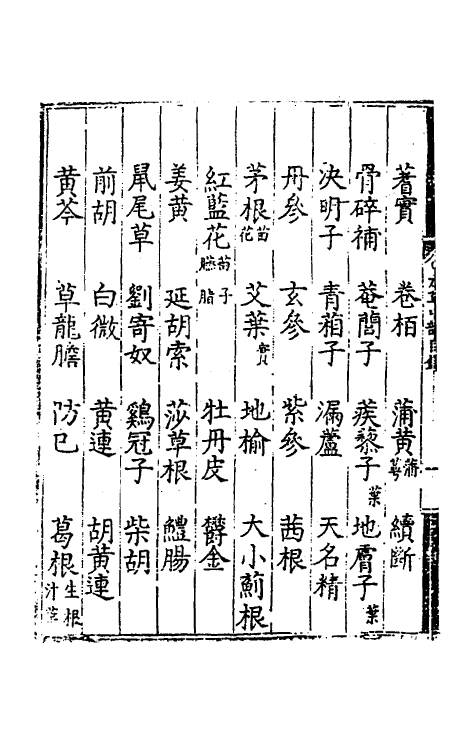 蓍實 卷栢 蒲黃 蒲蕚 續斷
骨碎補 菴䕡子 蒺藜子 葉 地膚子 葉
決明子 青葙子 漏蘆 天名精
丹參 玄參 紫參 茜根
茅根 苗花 艾葉 實 地榆 大小薊根
紅藍花 苗子胭脂 牡丹皮 欝金
姜黃 延胡索 莎草根 鱧腸
鼠尾草 劉寄奴 鷄冠子 柴胡
前胡 白微 黃連 胡黃連
黃芩 草龍膽 防巳 葛根 生根汁